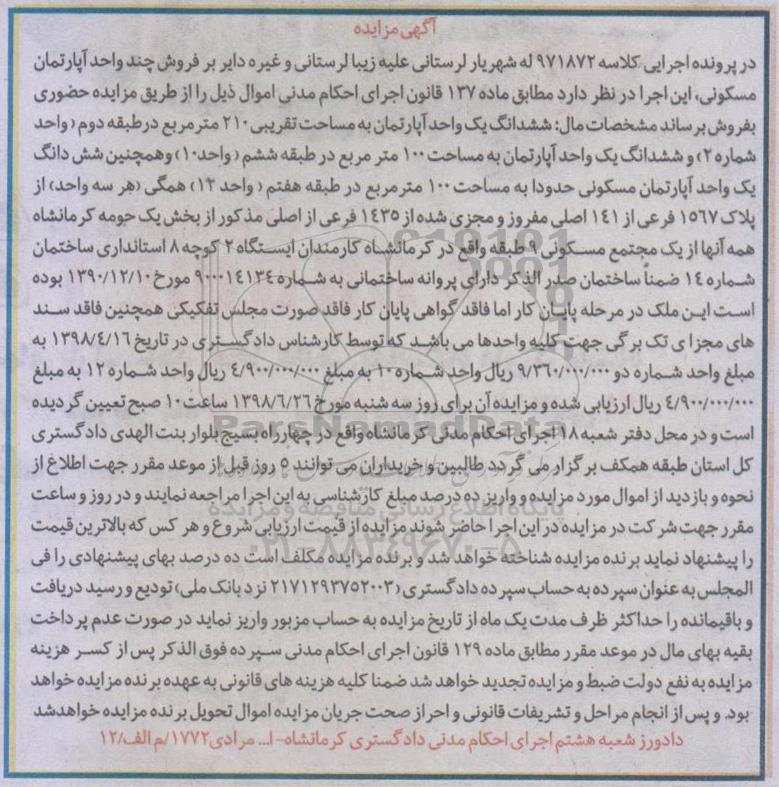 آگهی مزایده
در پرونده اجرایی کلاسه ۹۷۱۸۷۲ له شهریار لرستانی علیه زیبا لرستانی و غیره دایر بر فروش چند واحد آپارتمان
مسکونی، این اجرا در نظر دارد مطابق ماده ۱۳۷ قانون اجرای احکام مدنی اموال ذیل را از طریق مزایده حضوری
بفروش برساند مشخصات مال: ششدانگ یک واحد آپارتمان به مساحت تقریبی ۲۱۰ متر مربع درطبقه دوم (واحد
شماره ۲) و ششدانگ یک واحد آپارتمان به مساحت ۱۰۰ متر مربع در طبقه ششم (واحد۱۰) وهمچنین شش دانگ
یک واحد آپارتمان مسکونی حدودا به مساحت ۱۰۰ مترمربع در طبقه هفتم (واحد ۱۲) همگی (هر سه واحد) از
پلاک ۱۵۶۷ فرعی از ۱۴۱ اصلی مفروز و مجزی شده از ۱۴۳۵ فرعی از اصلی مذکور از بخش یک حومه کرمانشاه
همه آنها از یک مجتمع مسکونی ۹ طبقه واقع در کرمانشاه کارمندان ایستگاه ۲ کوچه ۸ استانداری ساختمان
شماره ۱۴ ضمناً ساختمان صدر الذکر دارای پروانه ساختمانی به شماره ۹۰۰۰۱۴۱۳۴ مورخ ۱۳۹۰/۱۲/۱۰ بوده
است این ملک در مرحله پایان کار اما فاقد گواهی پایان کار فاقد صورت مجلس تفکیکی همچنین فاقد سند
های مجزا ی تک برگی جهت کلیه واحدها می باشد که توسط کارشناس دادگستری در تاریخ ۱۳۹۸/۴/۱۶ به
مبلغ واحد شماره دو ۹/۳۶۰/۰۰۰/۰۰۰ ریال واحد شماره ۱۰ به مبلغ ۴/۹۰۰/۰۰۰/۰۰۰ ریال واحد شماره ۱۲ به مبلغ
۴/۹۰۰/۰۰۰/۰۰۰ ریال ارزیابی شده و مزایده آن برای روز سه شنبه مورخ ۱۳۹۸/۶/۲۶ ساعت ۱۰ صبح تعیین گردیده
است و در محل دفتر شعبه ۱۸ اجرای احکام مدنی کرمانشاه واقع در چهارراه بسیج بلوار بنت الهدی دادگستری
کل استان طبقه همکف برگزار می گردد طالبین و خریداران می توانند ۵ روز قبل از موعد مقرر جهت اطلاع از
نحوه و بازدید از اموال مورد مزایده و واریز ده درصد مبلغ کارشناسی به این اجرا مراجعه نمایند و در روز و ساعت
مقرر جهت شرکت در مزایده در این اجرا حاضر شوند مزایده از قیمت ارزیابی شروع و هر کس که بالاترین قیمت
را پیشنهاد نماید برنده مزایده شناخته خواهد شد و برنده مزایده مکلف است ده درصد بهای پیشنهادی را فی
المجلس به عنوان سپرده به حساب سپرده دادگستری (۲۱۷۱۲۹۳۷۵۲۰۰۳ نزد بانک ملی) تودیع و رسید دریافت
و باقیمانده را حداکثر ظرف مدت یک ماه از تاریخ مزایده به حساب مزبور واریز نماید در صورت عدم پرداخت
بقیه بهای مال در موعد مقرر مطابق ماده ۱۲۹ قانون اجرای احکام مدنی سپرده فوق الذکر پس از کسر هزینه
مزایده به نفع دولت ضبط و مزایده تجدید خواهد شد ضمنا کلیه هزینه های قانونی به عهده برنده مزایده خواهد
بود. و پس از انجام مراحل و تشریفات قانونی و احراز صحت جریان مزایده اموال تحویل برنده مزایده خواهدشد
دادورز شعبه هشتم اجرای احکام مدنی دادگستری کرمانشاه- ا... مرادی۱۷۷۲/م الف/۱۲
ParsNamadData
پایگاه اطلاع رسانی مناقصه و مزایده
۰۲۱-۸۸۳۴۹۶۷۰-۵